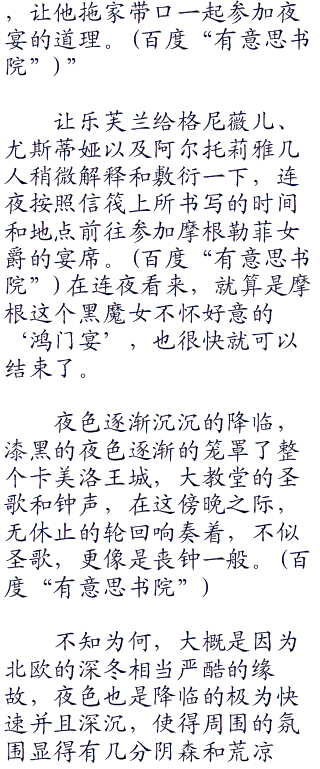 ，让他拖家带口一起参加夜
宴的道理。(百度“有意思书
院”)”
让乐芙兰给格尼薇儿、
尤斯蒂娅以及阿尔托莉雅几
人稍微解释和敷衍一下，连
夜按照信笺上所书写的时间
和地点前往参加摩根勒菲女
爵的宴席。(百度“有意思书
院”)在连夜看来，就算是摩
根这个黑魔女不怀好意的
‘鸿门宴’，也很快就可以
结束了。
夜色逐渐沉沉的降临，
漆黑的夜色逐渐的笼罩了整
个卡美洛王城，大教堂的圣
歌和钟声，在这傍晚之际，
无休止的轮回响奏着，不似
圣歌，更像是丧钟一般。(百
度“有意思书院”)
不知为何，大概是因为
北欧的深冬相当严酷的缘
故，夜色也是降临的极为快
速并且深沉，使得周围的氛
围显得有几分阴森和荒凉